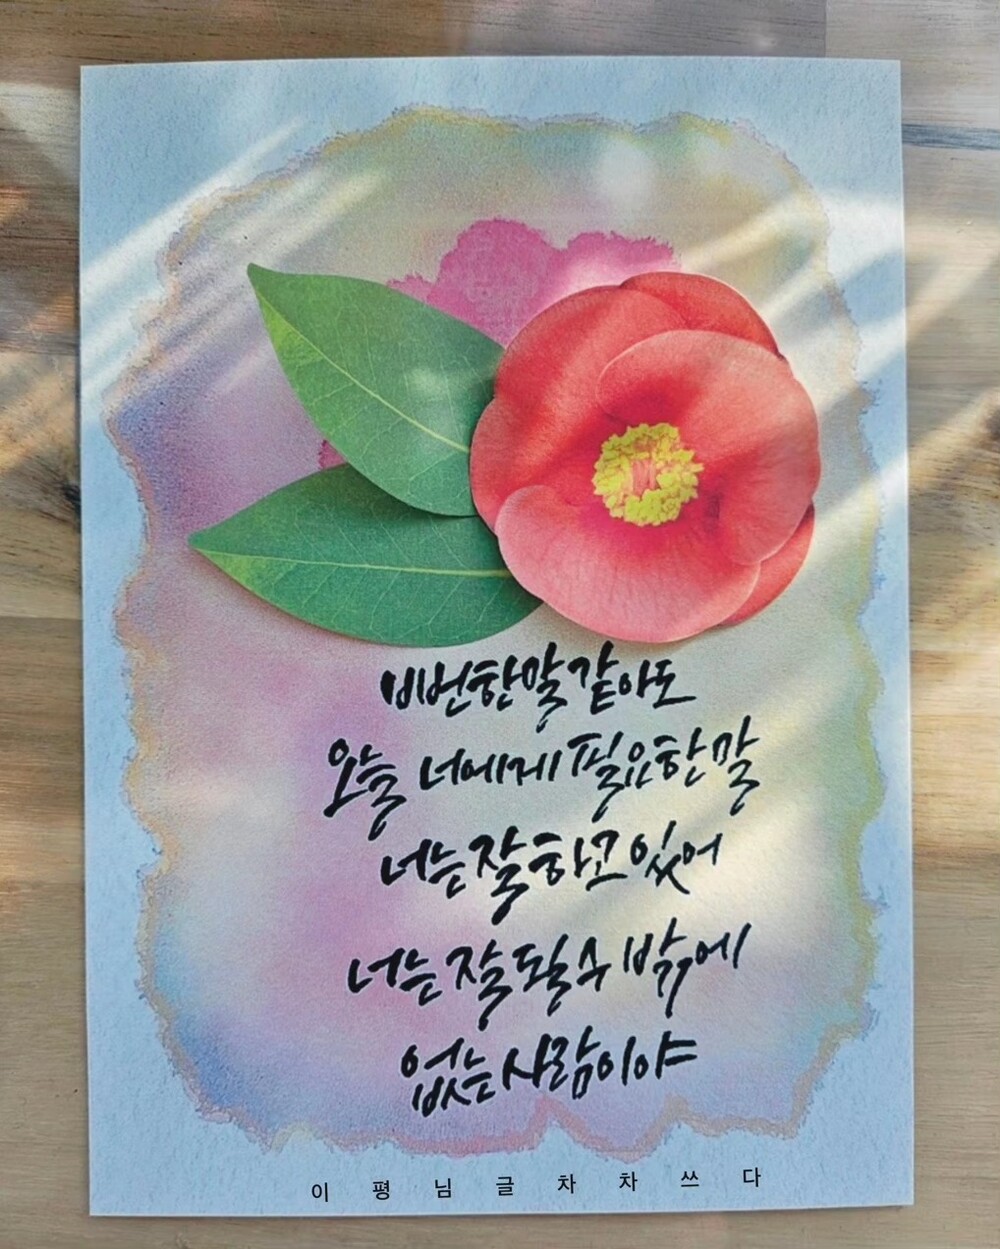 비번한말 같아도
오늘 너에게 필요한 말
너는 잘 하고 있어
너는 잘 될 수 밖에
없는 사람이야
이평님글 차차쓰다